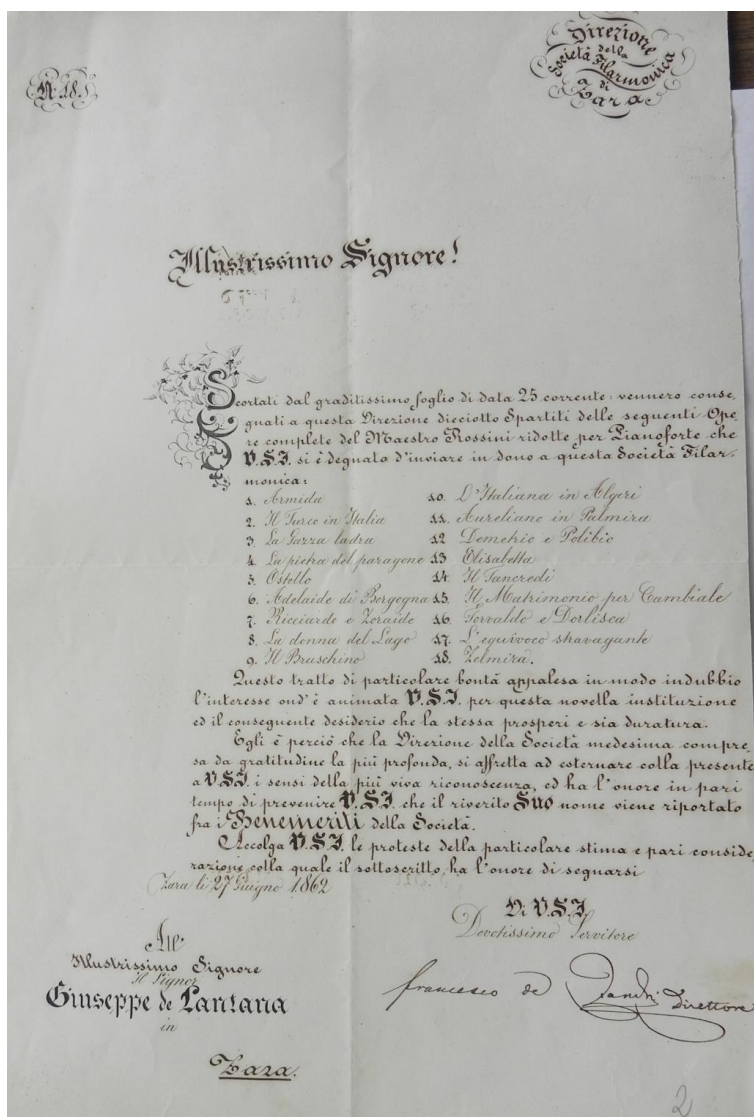 Direzione
della
Società Filarmonica
a di
Zara
N. 18.
Illustrissimo Signore!
Scortati dal graditissimo foglio di data 25 corrente vennero conse,
gnati a questa Direzione dieciotto Spartiti delle seguenti Ope,
re complete del Maestro Rossini ridotte per Pianoforte che
V.S.I. si è degnato d'inviare in dono a questa Società Filar,
monica:
1. Armida
2. Il Turco in Italia
3. La Gazza ladra
4. La pietra del paragone
5. Ostello
6. Adelaide di Borgogna
7. Ricciardo e Zoraide
8. La donna del Lago
9. Il Bruschino
10. L'Italiana in Algeri
11. Aureliano in Palmira
12 Demetrio e Polibio
13 Elisabetta
14. Il Tancredi
15. Il Matrimonio per Cambiale
16. Torvaldo e Dorlisca
17. L'equivoco stravagante
18. Zelmira.
Questo tratto di particolare bontà appalesa in modo indubbio
l'interesse ond'è animata V.S.I. per questa novella instituzione
ed il conseguente desiderio che la stessa prosperi e sia duratura.
Egli è perciò che la Direzione della Società medesima compre,
sa da gratitudine la più profonda, si affretta ad esternare colla presente
a V.S.I. i sensi della più viva riconoscenza, ed ha l'onore in pari
tempo di prevenire V.S.I. che il riverito Suo nome viene riportato
fra i Benemeriti della Società.
Accolga V.S.I. le proteste della particolare stima e pari conside,
razione colla quale il sottoscritto, ha l'onore di segnarsi
Zara li 27 Giugno 1862
Di V.S.I.
Devotissimo Servitore
francesco de Direttore
All'
Illustrissimo Signore
Il Signor
Giuseppe de Lantana
in
Zara.
2